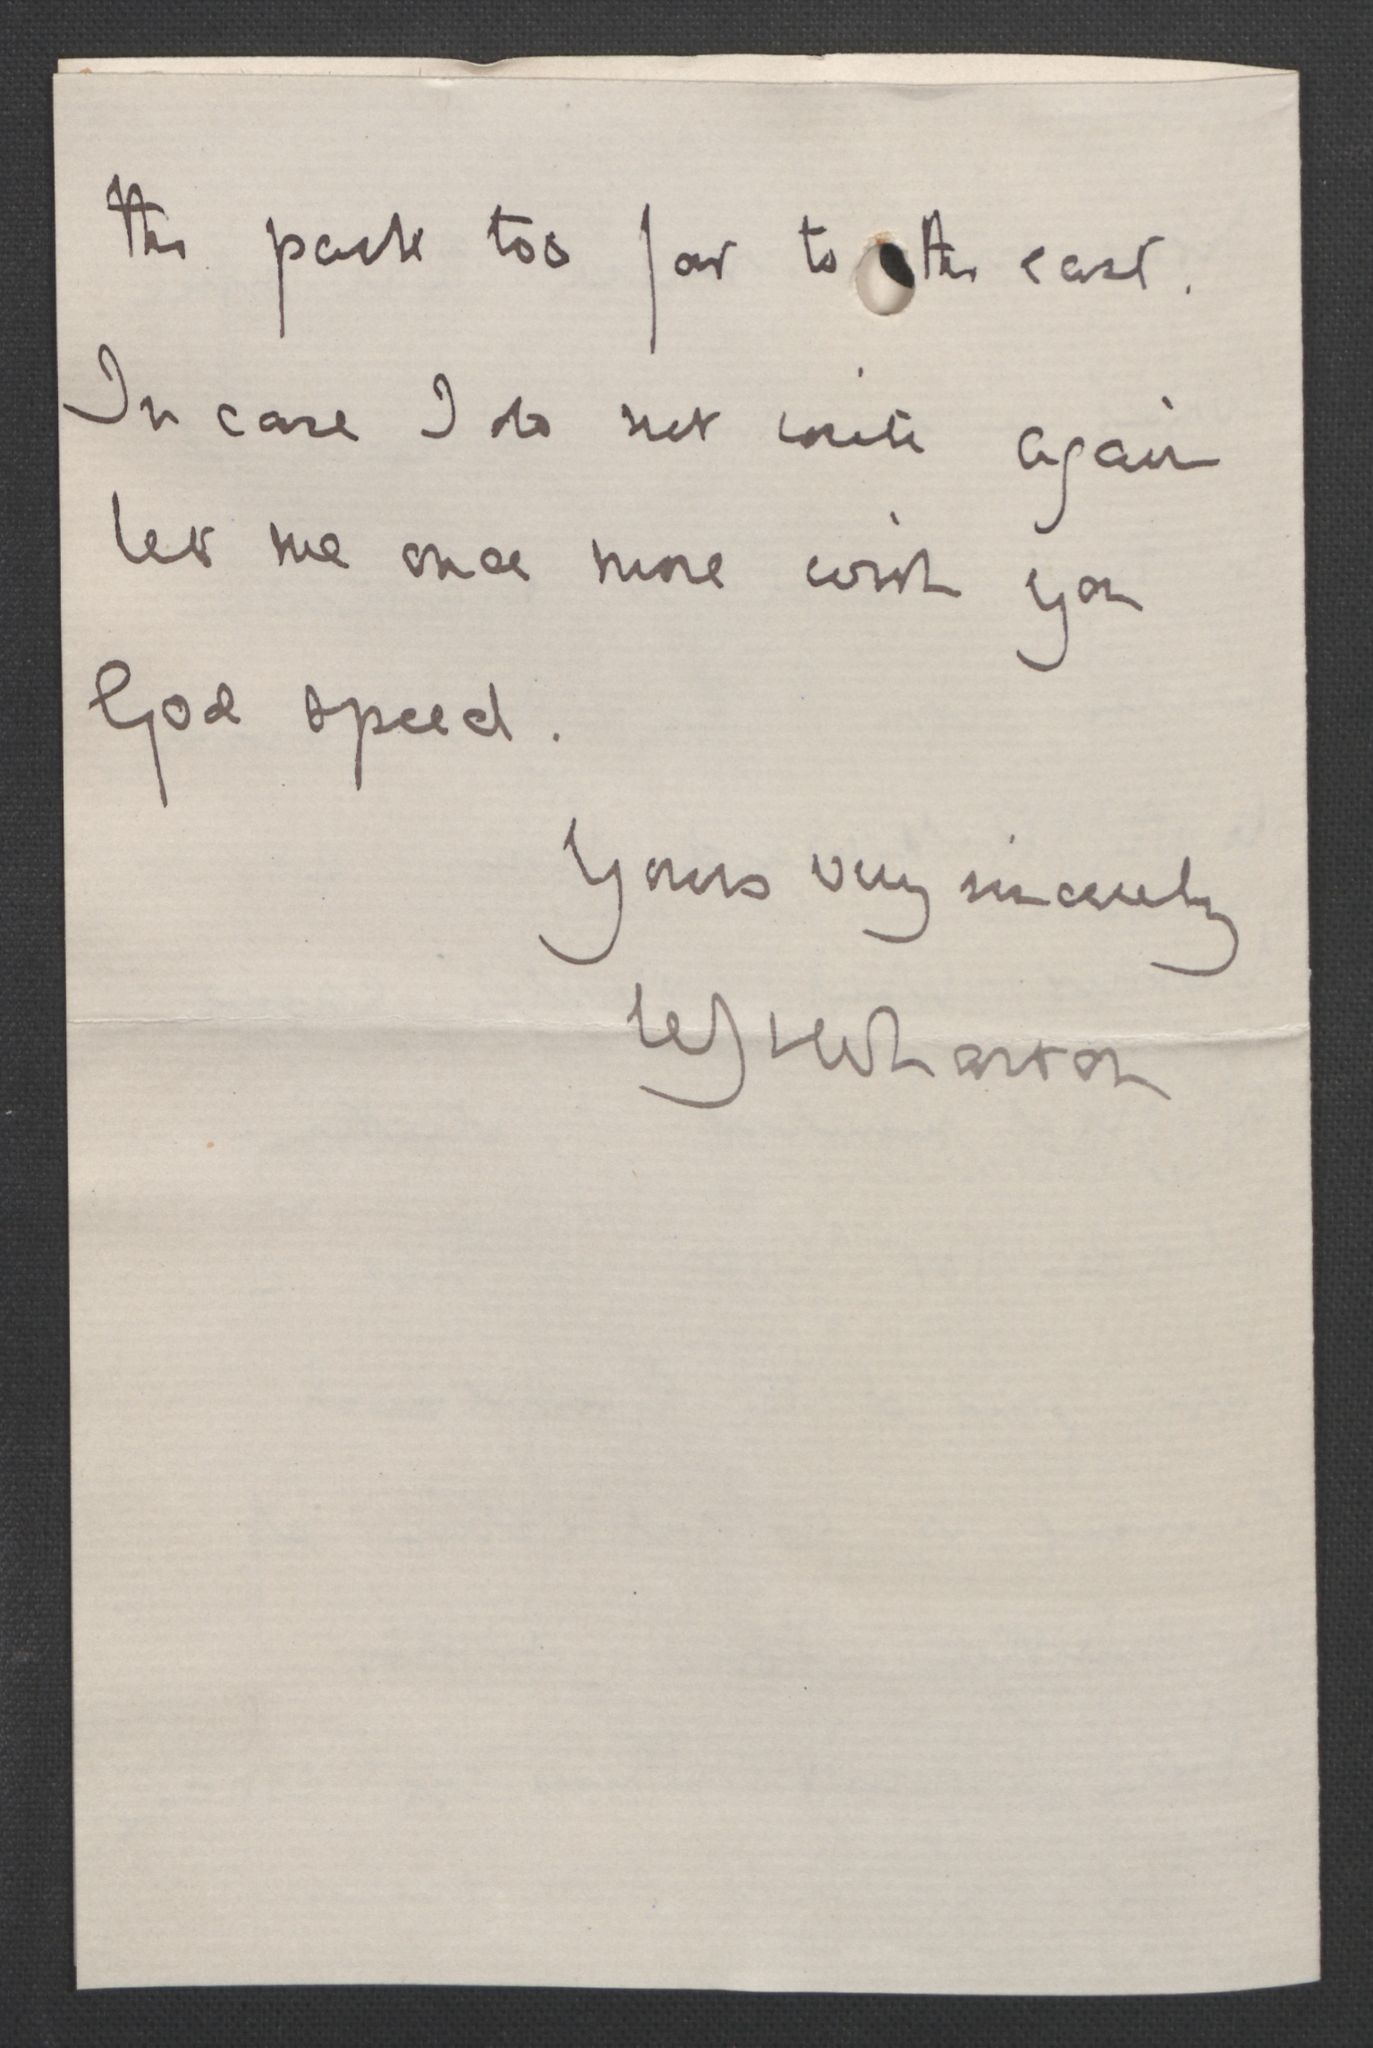 the pack too far to the east.
In case I do not write again
let me once more wish you
God speed.
Yours very sincerely
WJLWharton